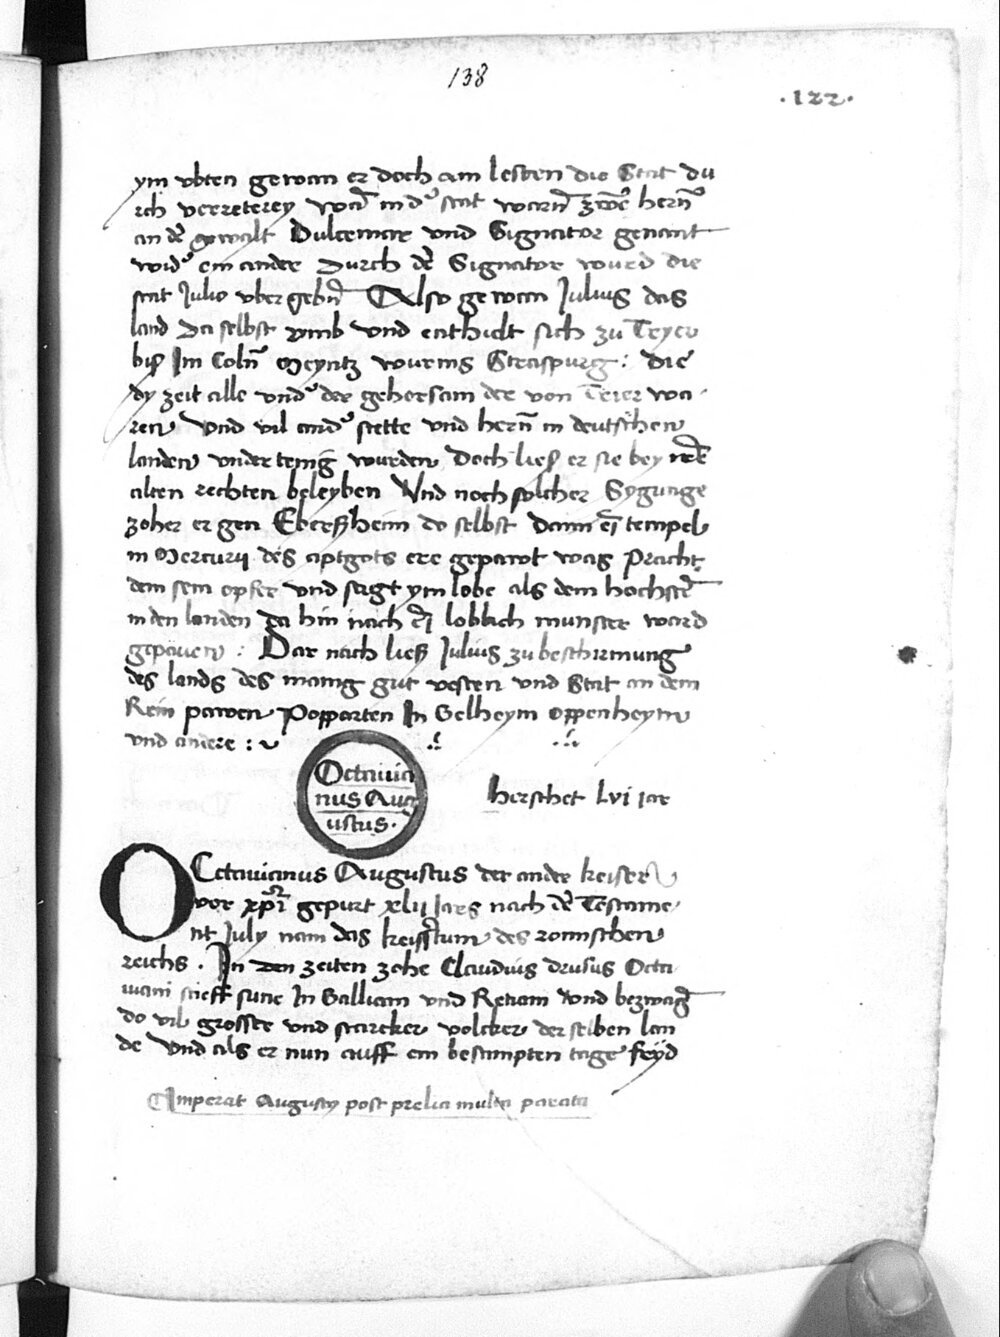 138
·122·
ym vbten gewan er doch am lesten die Stat du
rch verreterey wañ in d' stat warñ zwẽ herrñ
an dẽ gewalt Dulcemar vnd Signator genant
wid' ein ander Durch dẽ Signator wurd die
stat Julio vbergebñ Also gewan Julius das
land Da selbst vmb vnd enthielt sich zu Treyer
biß Im Colñ Meyntz wurms Straspurg : die
dy zeit alle vnd' der gehorsam der von Trier wa
ren Vnd vil and' stette vnd herrñ in deutschen
landen vndertenig wurden Doch ließ er sie bey
alten rechten beleyben Vnd noch solcher Sygunge
zoher er gen Eberßheim do selbst Dann tempel
in Mercurij des aptgots ere gepawt was Pracht
dem sein opfer vnd sagt ym lobe als dem hochstẽ
in den landen Da hin nach eĩ loblich munster ward
gepawen : Dar nach ließ Julius zu beschirmung
des lands des mang gut vesten vnd Stat an dem
Rein pawen Popparten In Gelheym Oppenheym
vnd andere :
Octauia
nus Aug
ustus.
herschet lvi jar
OCtauianus Augustus der ander keiser
vor xp̃i gepurt xlij Jars nach dẽ Testame
nt July nam das keisertum des romischen
reichs . In den zeiten zohe Claudius drusus Octa
uiani stieff sune In Galliam vnd Retiam Vnd bezwãg
do vil grosser vnd starcker volcker der selben lan
de Vnd als er nun auff ein bestimpten tage feyd
Imperat Augusty post prelia multa parata